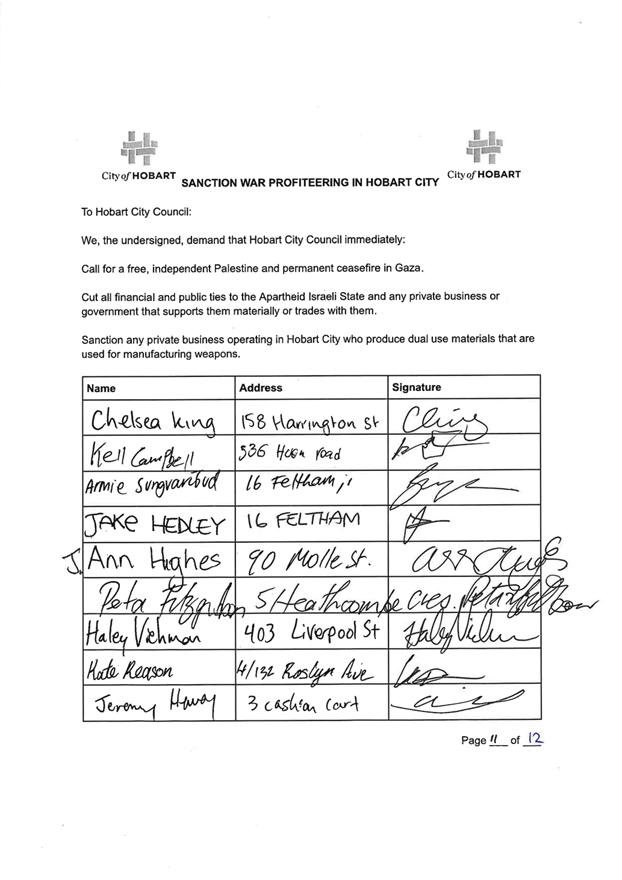 City of HOBART
City of HOBART
SANCTION WAR PROFITEERING IN HOBART CITY
To Hobart City Council:
We, the undersigned, demand that Hobart City Council immediately:
Call for a free, independent Palestine and permanent ceasefire in Gaza.
Cut all financial and public ties to the Apartheid Israeli State and any private business or
government that supports them materially or trades with them.
Sanction any private business operating in Hobart City who produce dual use materials that are
used for manufacturing weapons.
Name Address Signature
Chelsea King 158 Harrington St
Kell Campbell 536 road
Armie 16 Feltham
JAKE HEDLEY 16 FELTHAM
J. Ann Hughes 90 Molle St. Ann Hughes
Peta 5 Heathcombe Cres. Peta
Haley Viehman 403 Liverpool St Haley
Kate Reason 4/132 Roslyn Ave
Jeremy 3 court
Page 11 of 12